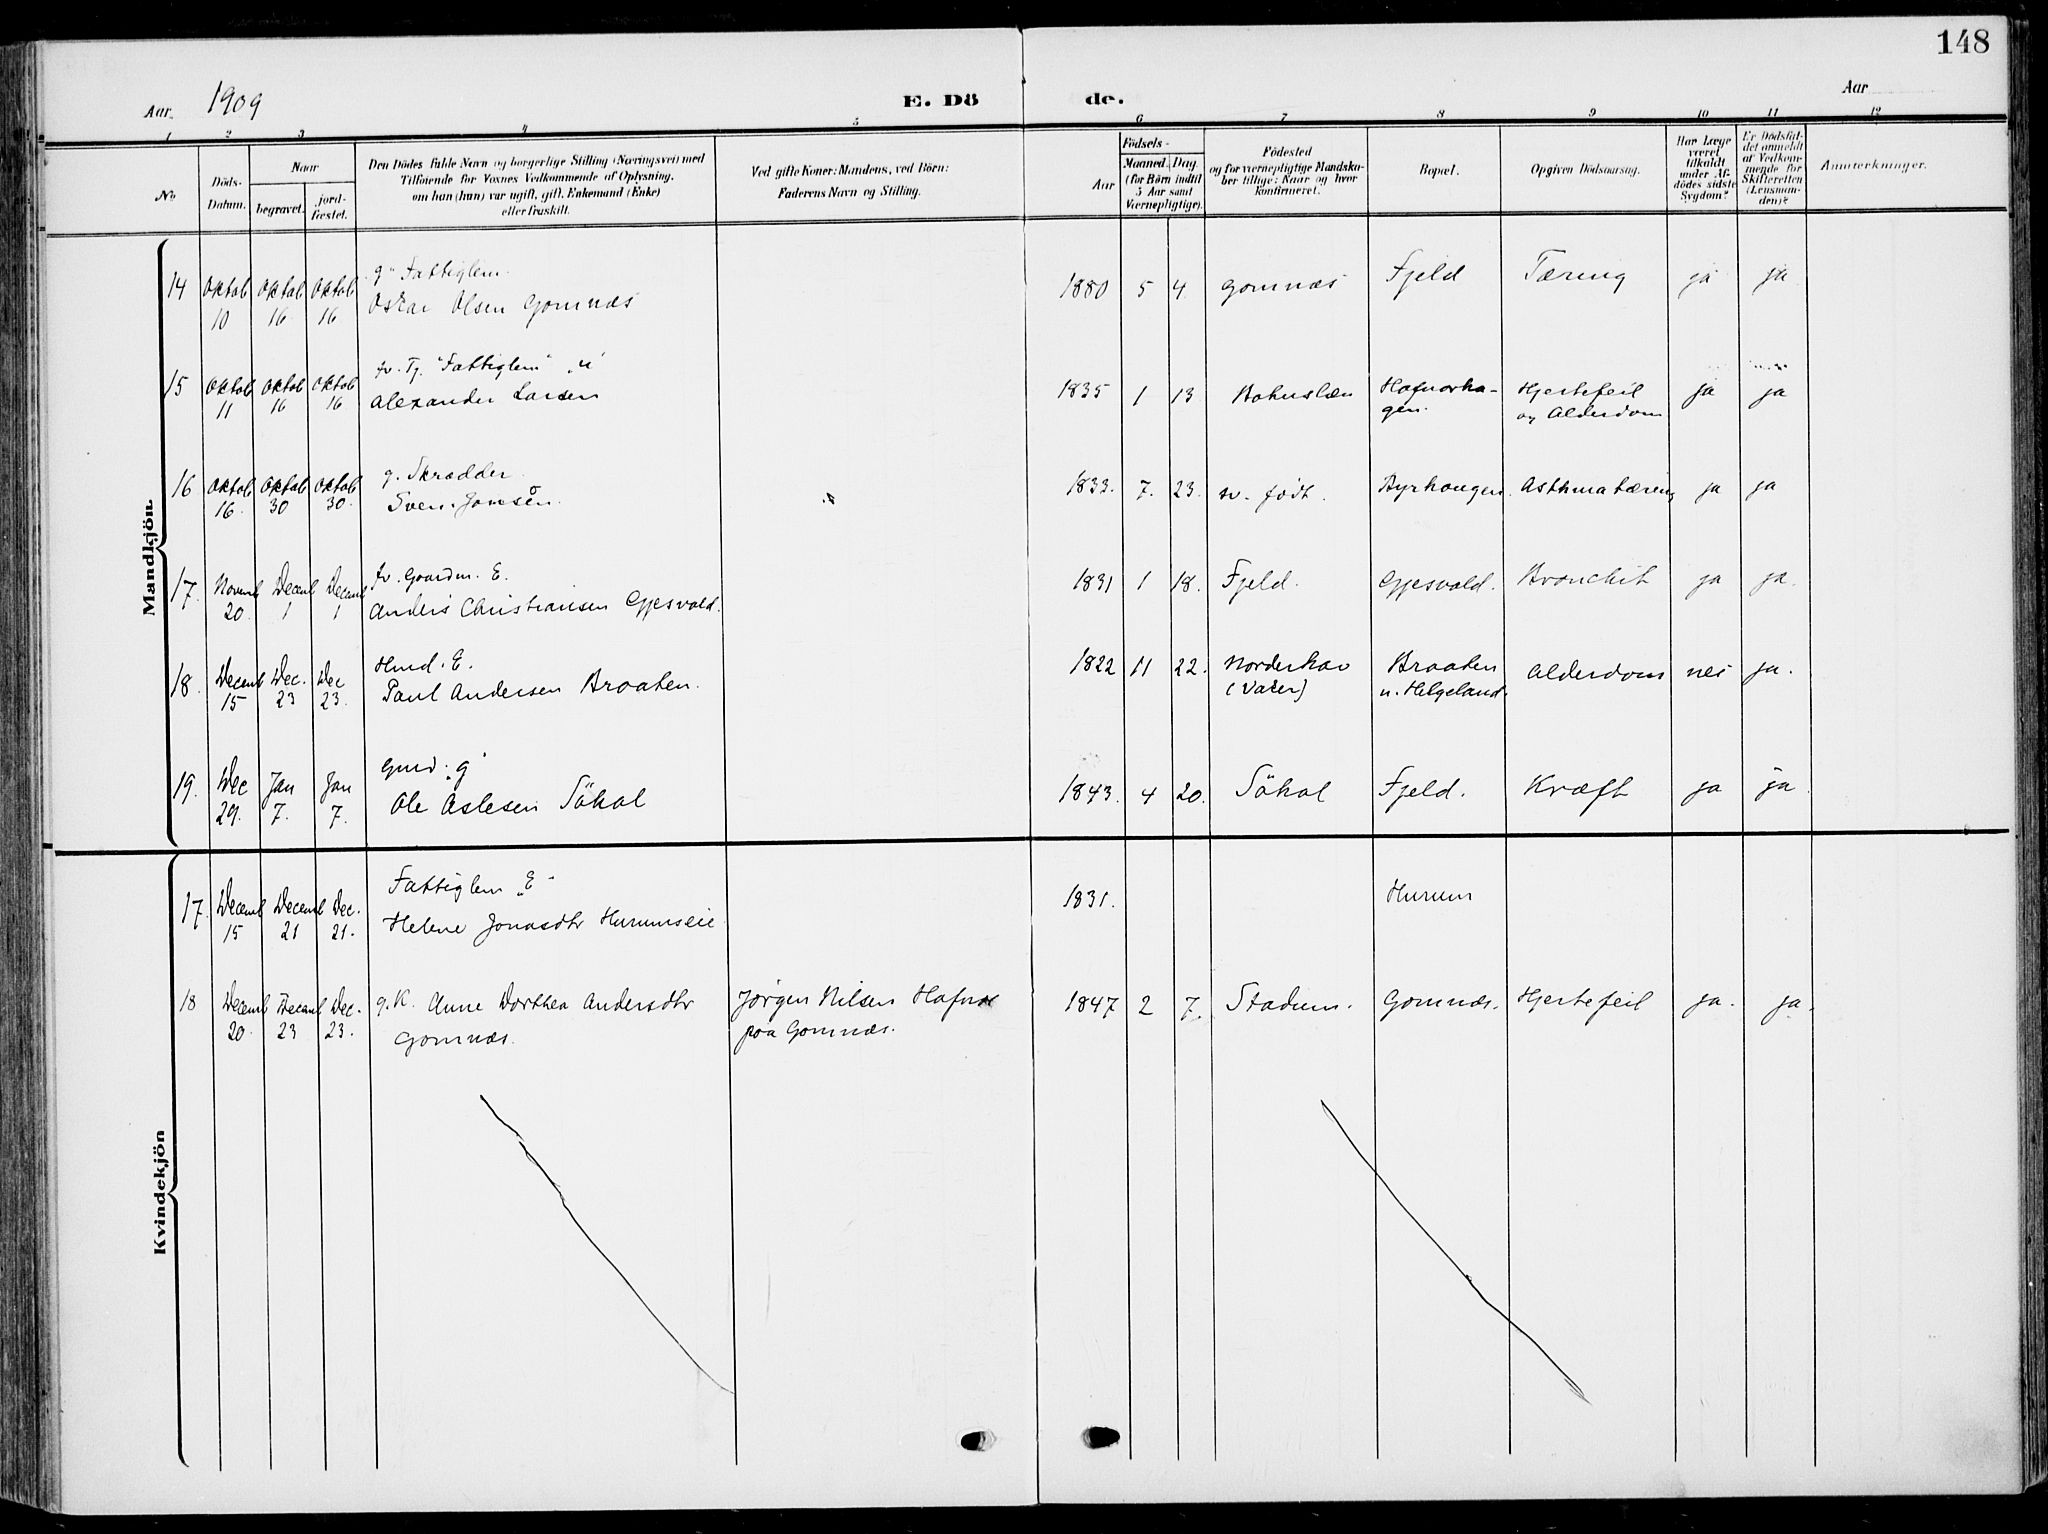 148
Aar 1909
E. Döde.
Aar
1 2 3 4 5 6 7 8 9 10 11 12
No
Döds-Datum.
Naar
begravet.
jordfæstet.
Den Dödes fulde Navn og borgerlige Stilling (Næringsvei) med
Tilföiende for Voxnes Vedkommende af Oplysning,
om han (hun) var ugift, gift, Enkemand (Enke)
eller fraskilt.
Ved gifte Koner: Mandens, ved Börn:
Faderens Navn og Stilling.
Aar
Födsels-
Maaned. Dag.
(for Börn indtil
5 Aar samt
Værnepligtige).
Födested
og for værnepligtige Mandskaber tillige: Naar og hvor
konfirmeret.
Bopæl.
Opgiven Dödsaarsag.
Har Læge
været
tilkaldt
under Afdödes sidste
Sygdom?
Er Dödsfaldet anmeldt
af Vedkommende for
Skifteretten
(Lensmanden)?
Anmærkninger.
Mandkjön.
14 Oktob 10 Oktob 16 Oktob 16 g" Fattiglem.
Oskar Olsen Gomnæs
1880 5 4 Gomnæs Fjeld Tæring ja ja
15 Oktob 11 Oktob 16 Oktob 16 fv. Tj. "Fattiglem" "u"
Alexander Larsen
1835 1 13 Bohuslæn Hafnorhagen. Hjertefeil
og Alderdom ja ja
16 Oktob 16. Oktob 30 Oktob 30. g. Skrædder
Sven Jonsen.
1833. 7. 23. sv. født. Byrhaugen. Asthma tæring ja ja
17. Novemb 20. Decemb 1 Decemb 1 fv. Gaardm. E.
Anders Christiansen Gjesvold.
1831 1 18. Fjeld. Gjesvold. Bronchit ja ja.
18. Decemb 15 Dec. 23 Dec 23. Hmd. E.
Paul Andersen Braaten.
1822 11 22. Norderhov
(Vaker)
Braaten
u. Helgeland. Alderdom nei ja.
19. Dec 29. Jan 7. Jan 7. Gmd. "g"
Ole Aslesen Sökol
1843. 4 20. Sökol Fjeld. Kræft ja ja
Kvindekjön
17. Decemb 15 Decemb 21 Dec. 21. Fattiglem "E"
Helene Jonasdtr Hurumseie
1831. Hurum
18 Decemb 20. Decemb 23 Dec. 23. g. K. Anne Dorthea Andersdtr
Gomnæs.
Jørgen Nilsen Hafnor
paa Gomnæs.
1847 2 7. Stadum. Gomnæs. Hjertefeil ja. ja.